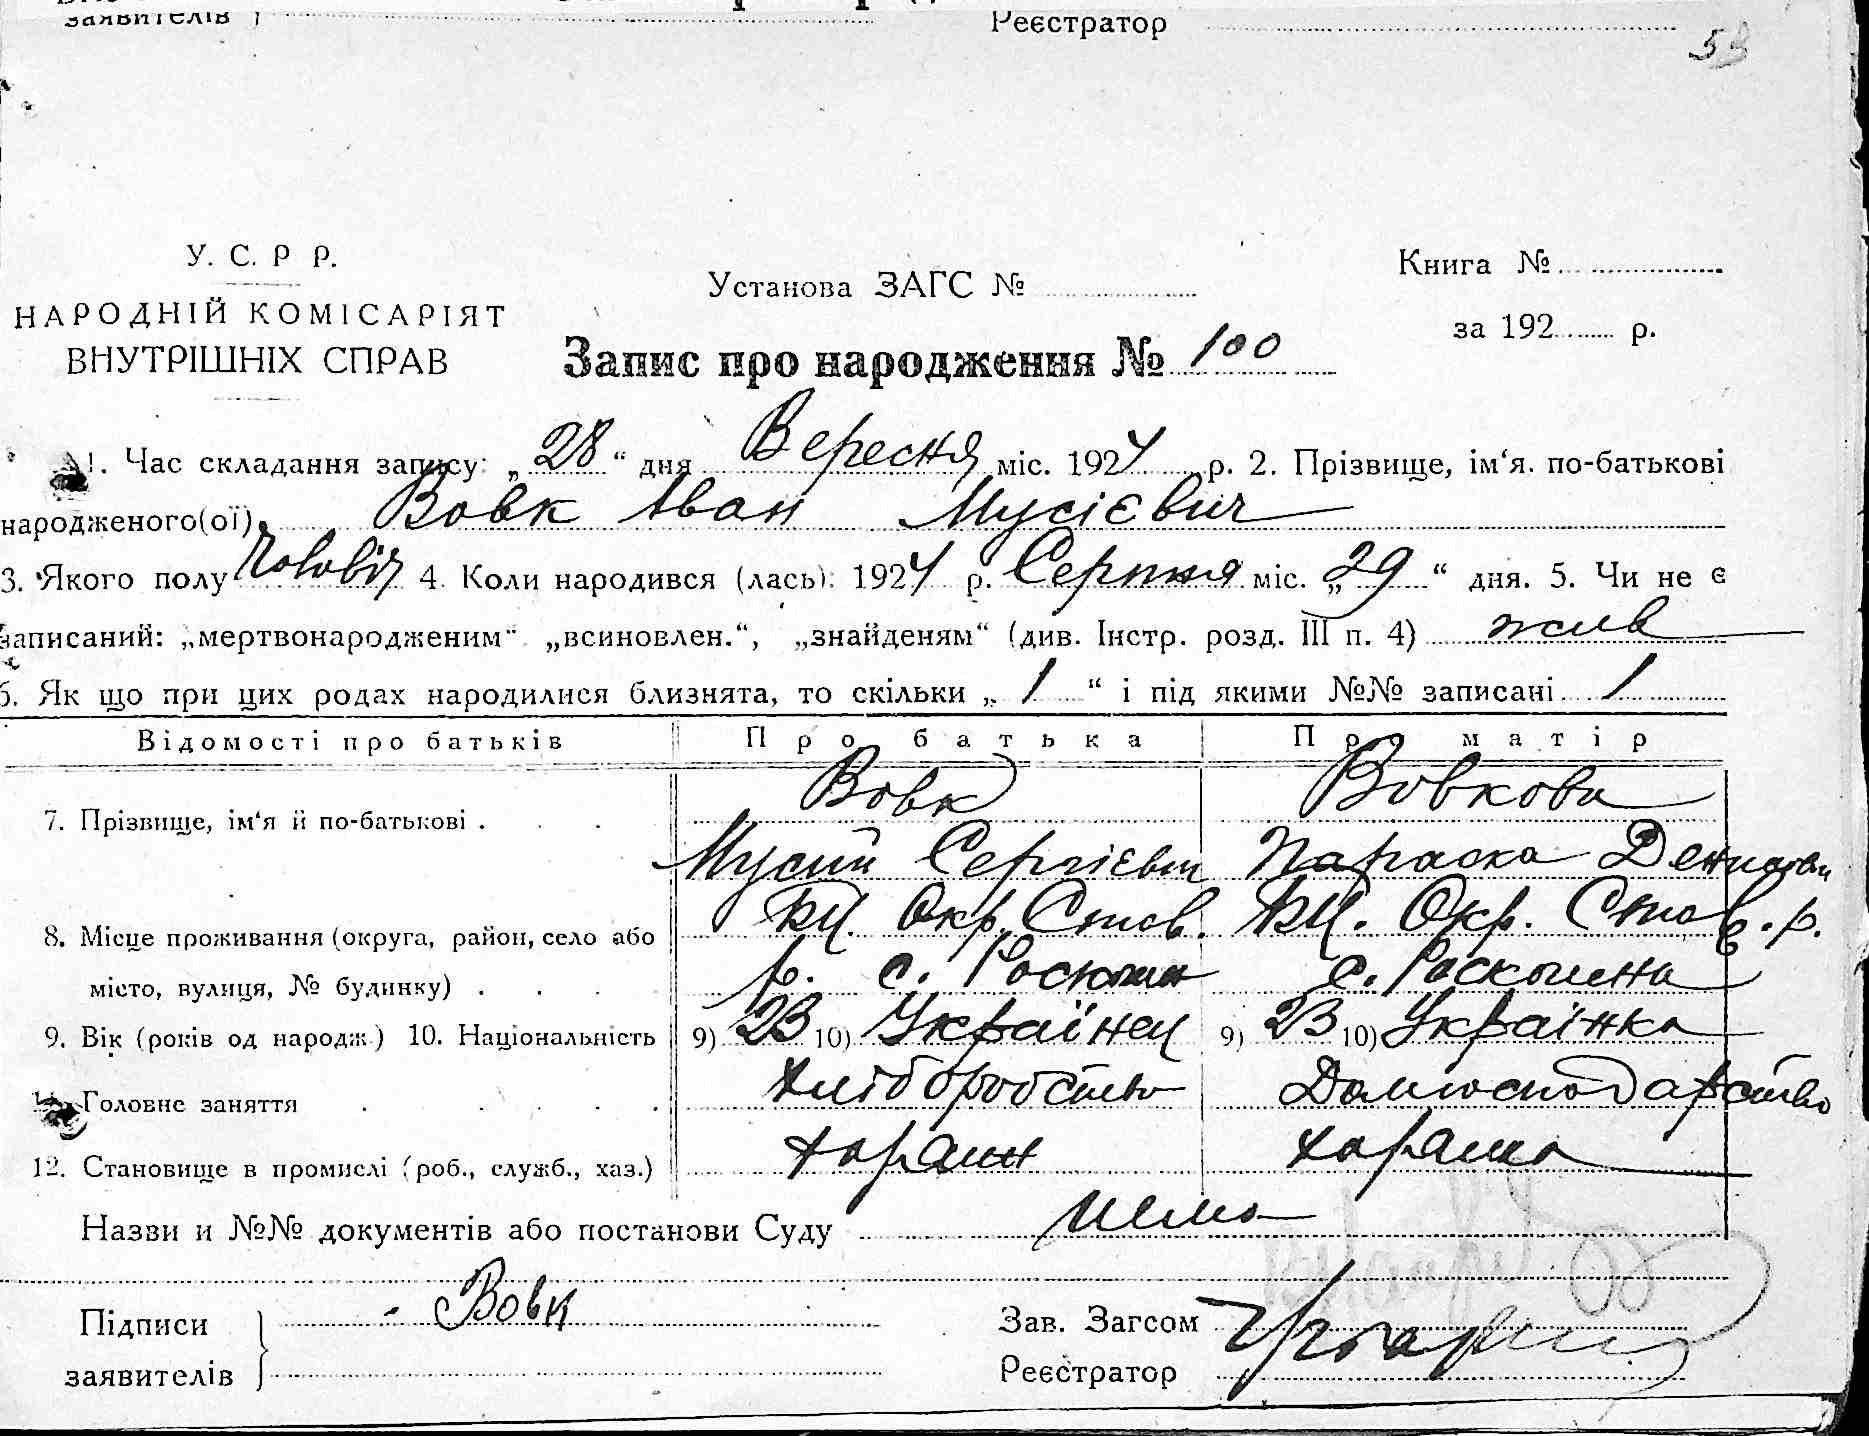 заявителів
Реєстратор
53
У. С. Р Р.
НАРОДНІЙ КОМІСАРІЯТ
ВНУТРІШНІХ СПРАВ
Установа ЗАГС №
Книга №
за 192 р.
Запис про народження № 100
1. Час складання запису: „28“ дня Вересня міс. 1924 р. 2. Прізвище, ім‘я. по-батькові
народженого(ої) Вовк Іван Мусієвич
3. Якого полу Чоловіч 4. Коли народився (лась): 1924 р. Серпня міс. „29“ дня. 5. Чи не є
записаний: „мертвонародженим“ „всиновлен.“, „знайденям“ (див. Інстр. розд. III п. 4) жив
6. Як що при цих родах народилися близнята, то скільки „1“ і під якими №№ записані 1
Відомості про батьків Про батька Про матір
Вовк Вовкова
7. Прізвище, ім‘я й по-батькові
Мусій Сергієвич Параска Денисови
БЦ. Окр. Став. БЦ. Окр. Став. р.
8. Місце проживання (округа, район, село або
місто, вулиця, № будинку) р. с. с.
9. Вік (років од народж.) 10. Національність 9) 23 10) Українец 9) 23 10) Українка
Головне заняття Хліборобство Домгосподарство
12. Становище в промислі (роб., служб., хаз.)
Назви и №№ документів або постанови Суду Нема
Підписи
заявителів
Вовк
Зав. Загсом
Реєстратор